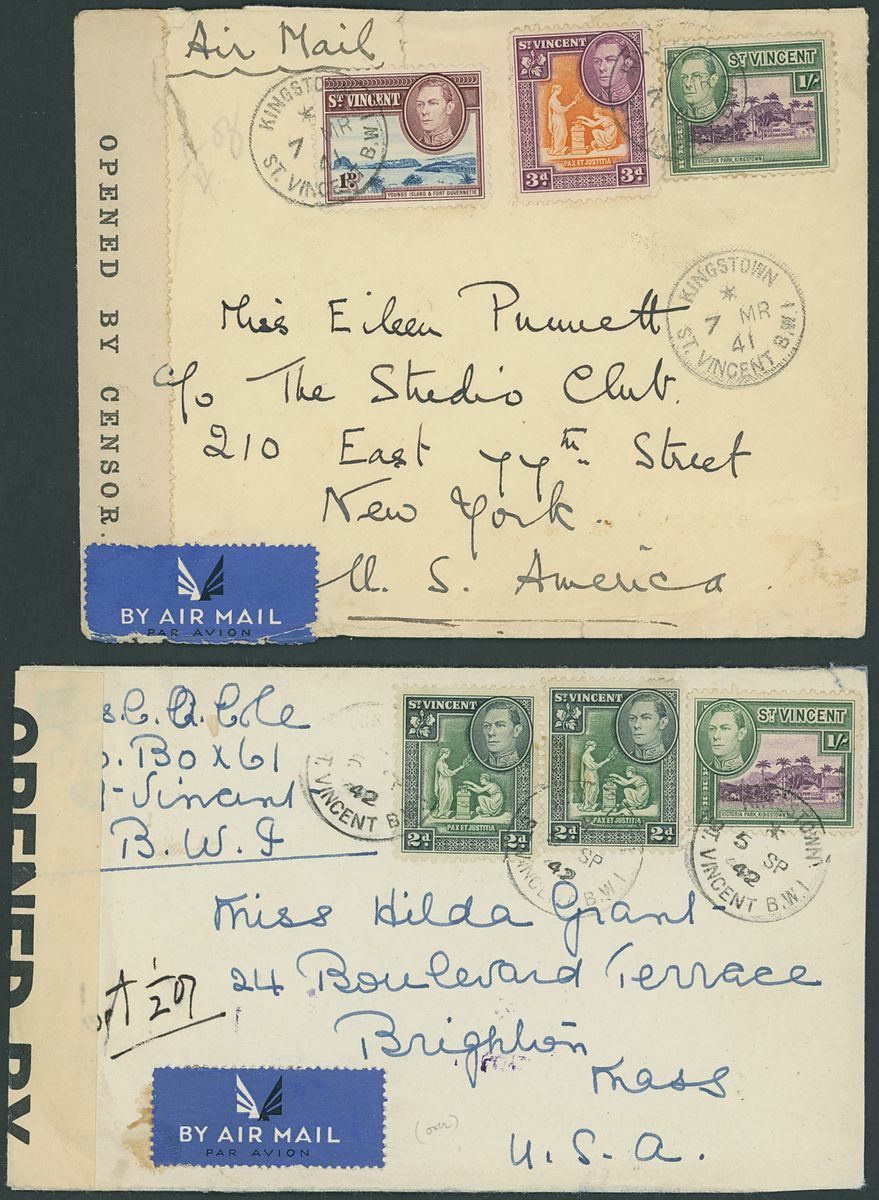 Air Mail
OPENED BY CENSOR.
KINGSTOWN
7 MR
41
ST. VINCENT B.W.I.
ST VINCENT
1D
YOUNGS ISLAND & FORT DUVERNETTE
ST VINCENT
PAX ET JUSTITIA
3d 3d
ST VINCENT
1/-
VICTORIA PARK, KINGSTOWN
KINGSTOWN
7 MR
41
ST. VINCENT B.W.I.
Miss Eileen Punnett
c/o The Studio Club.
210 East 77th Street
New York.
U. S. America.
BY AIR MAIL
PAR AVION
OPENED BY
s. C. A. Cole
. Box 61
t-Vincent
B.W.I
42
T. VINCENT B
ST VINCENT
PAX ET JUSTITIA
2d 2d
ST VINCENT
PAX ET JUSTITIA
2d 2d
ST VINCENT
1/-
VICTORIA PARK, KINGSTOWN
SP
42
B.W.I.
5 SP
42
VINCENT B.W.I.
Miss Hilda Grant
24 Boulevard Terrace
Brighton
Mass
U.S.A.
BY AIR MAIL
PAR AVION
(over)